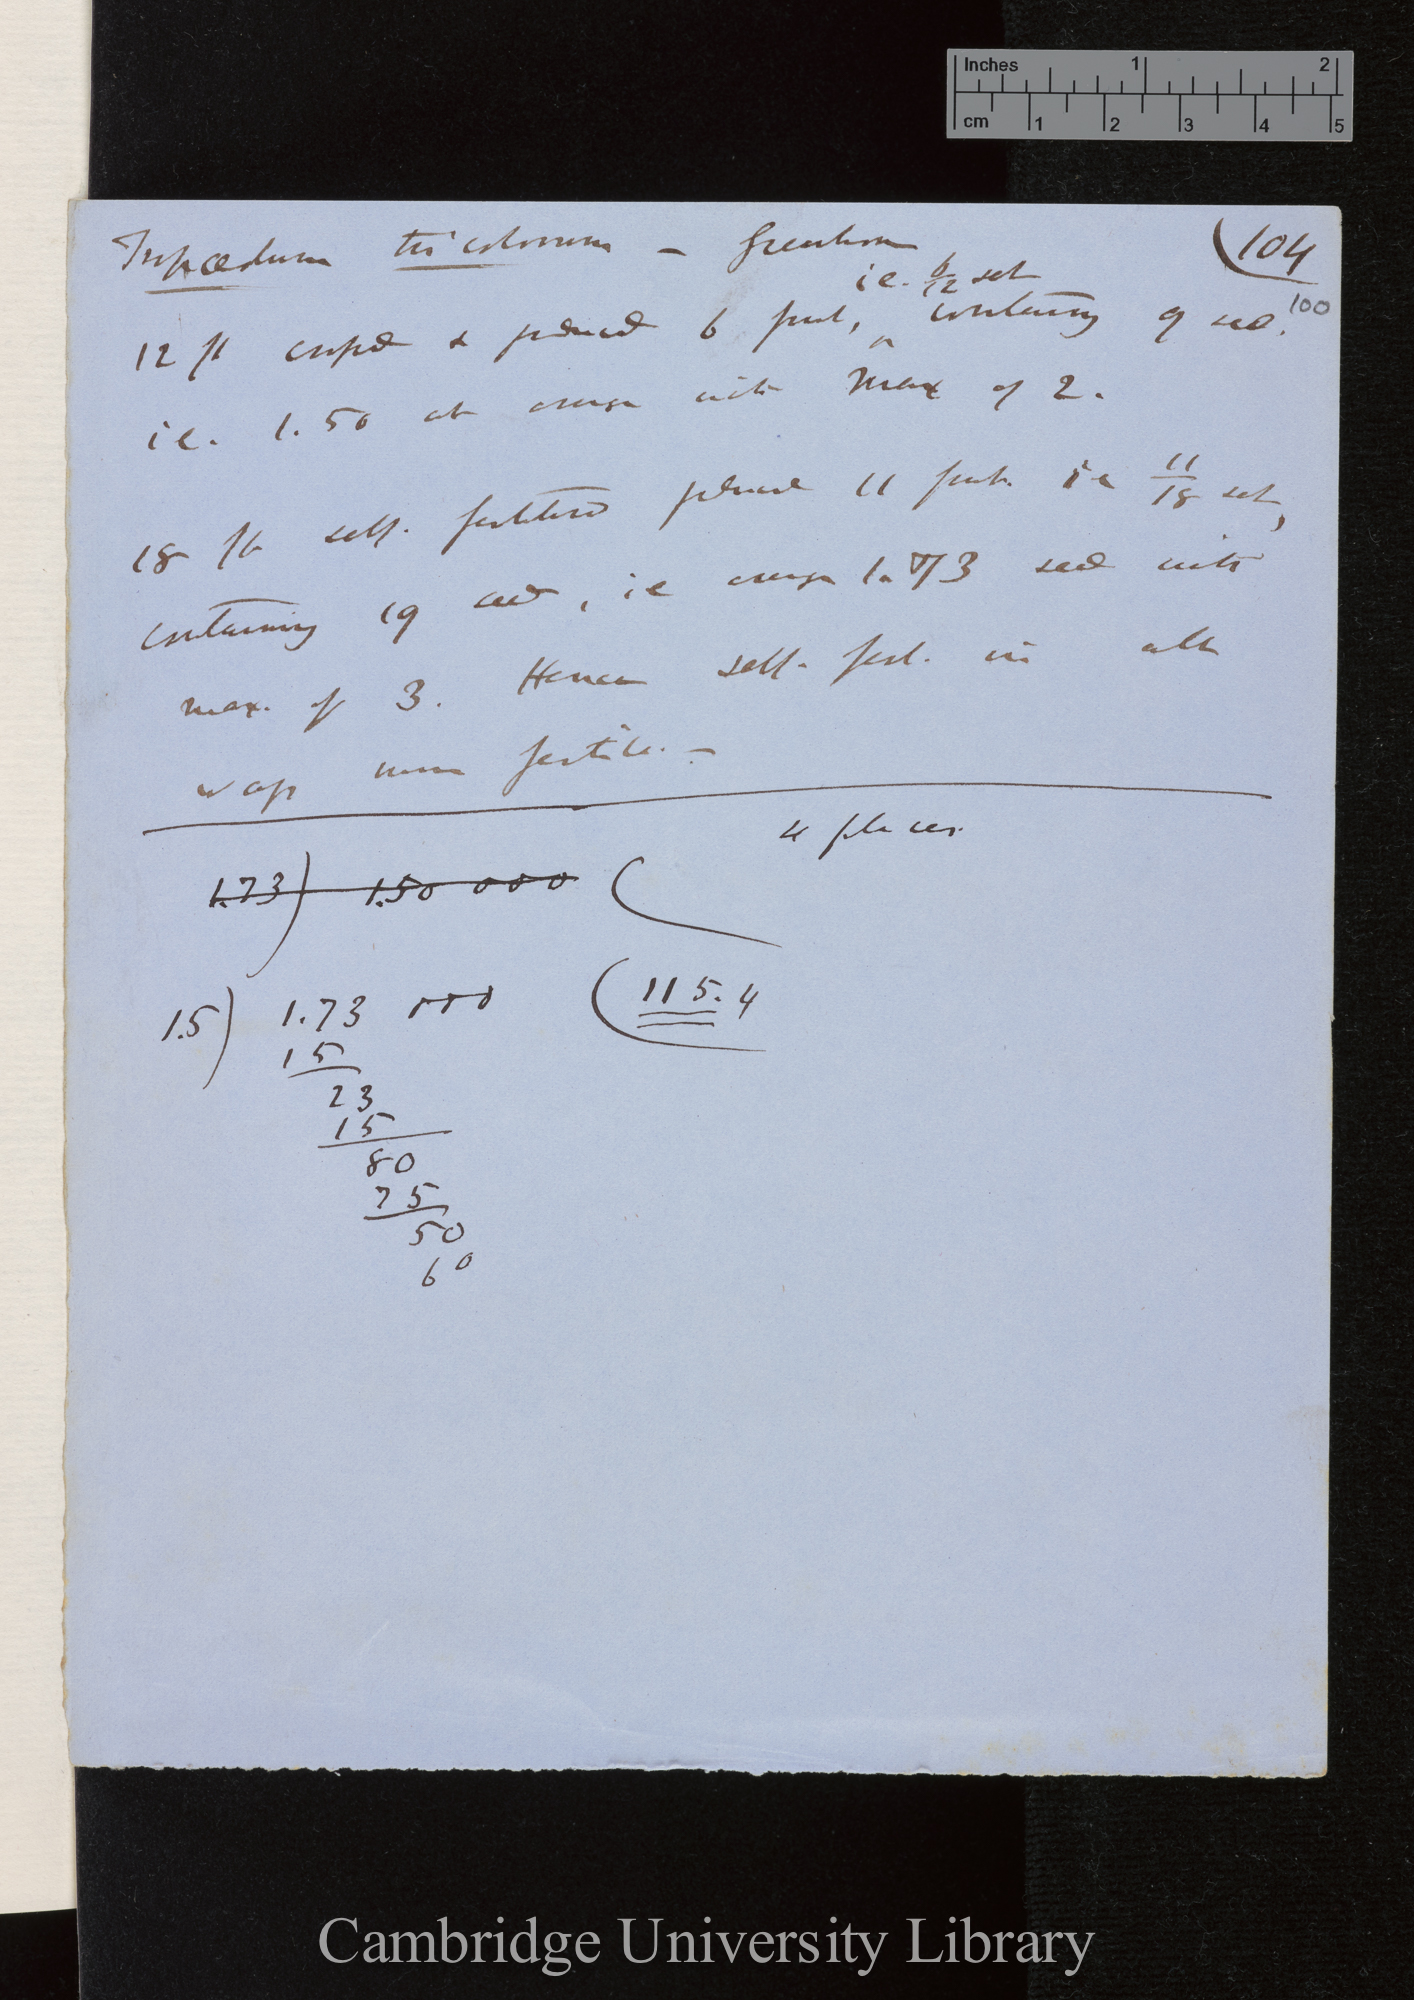 Inches 1 2
cm 1 2 3 4 5
Tropæolum tricolorum — Greenhouse (104
i.e. 6/12 set 100
12 fl crossed & produced 6 fruit, ^ containing 9 seed.
i.e. 1.50 on average with max of 2.
18 fl self. fertilised produced 11 fruit i e 11/18 set,
containing 19 seed, i e average 1.73 seed with
max. of 3. Hence self-fert. in all
ways more fertile. —
4 places.
1.73) 1.50 000 (
1.5) 1.73 000 (115.4
15
23
15
80
75
50
60
Cambridge University Library